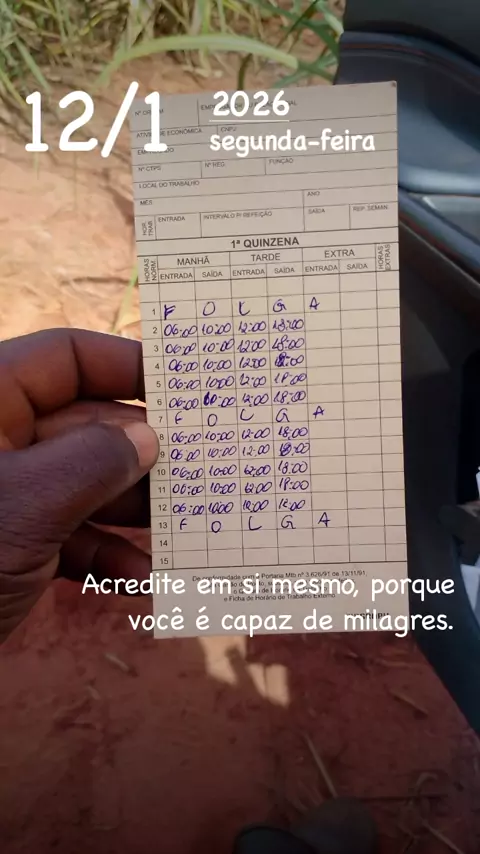 12/1
2026
segunda-feira
Nº
ATIVIDADE ECONÔMICA
Nº CTPS Nº REG. FUNÇÃO
LOCAL DO TRABALHO
MÊS ANO
HOR. TRAB. ENTRADA INTERVALO P/ REFEIÇÃO SAÍDA REP. SEMAN.
1ª QUINZENA
HORAS NORM. MANHÃ TARDE EXTRA HORAS EXTRAS
ENTRADA SAÍDA ENTRADA SAÍDA ENTRADA SAÍDA
1 F O L G A
2 06:00 10:00 12:00 18:00
3 06:00 10:00 12:00 18:00
4 06:00 10:00 12:00 18:00
5 06:00 10:00 12:00 18:00
6 06:00 10:00 12:00 18:00
7 F O L G A
8 06:00 10:00 12:00 18:00
9 06:00 10:00 12:00 18:00
10 06:00 10:00 12:00 18:00
11 06:00 10:00 12:00 18:00
12 06:00 10:00 12:00 18:00
13 F O L G A
14
15
De conformidade com a Portaria Mtb nº 3.626/91 de 13/11/91,
e Ficha de Horário de Trabalho Externo
Acredite em si mesmo, porque
você é capaz de milagres.